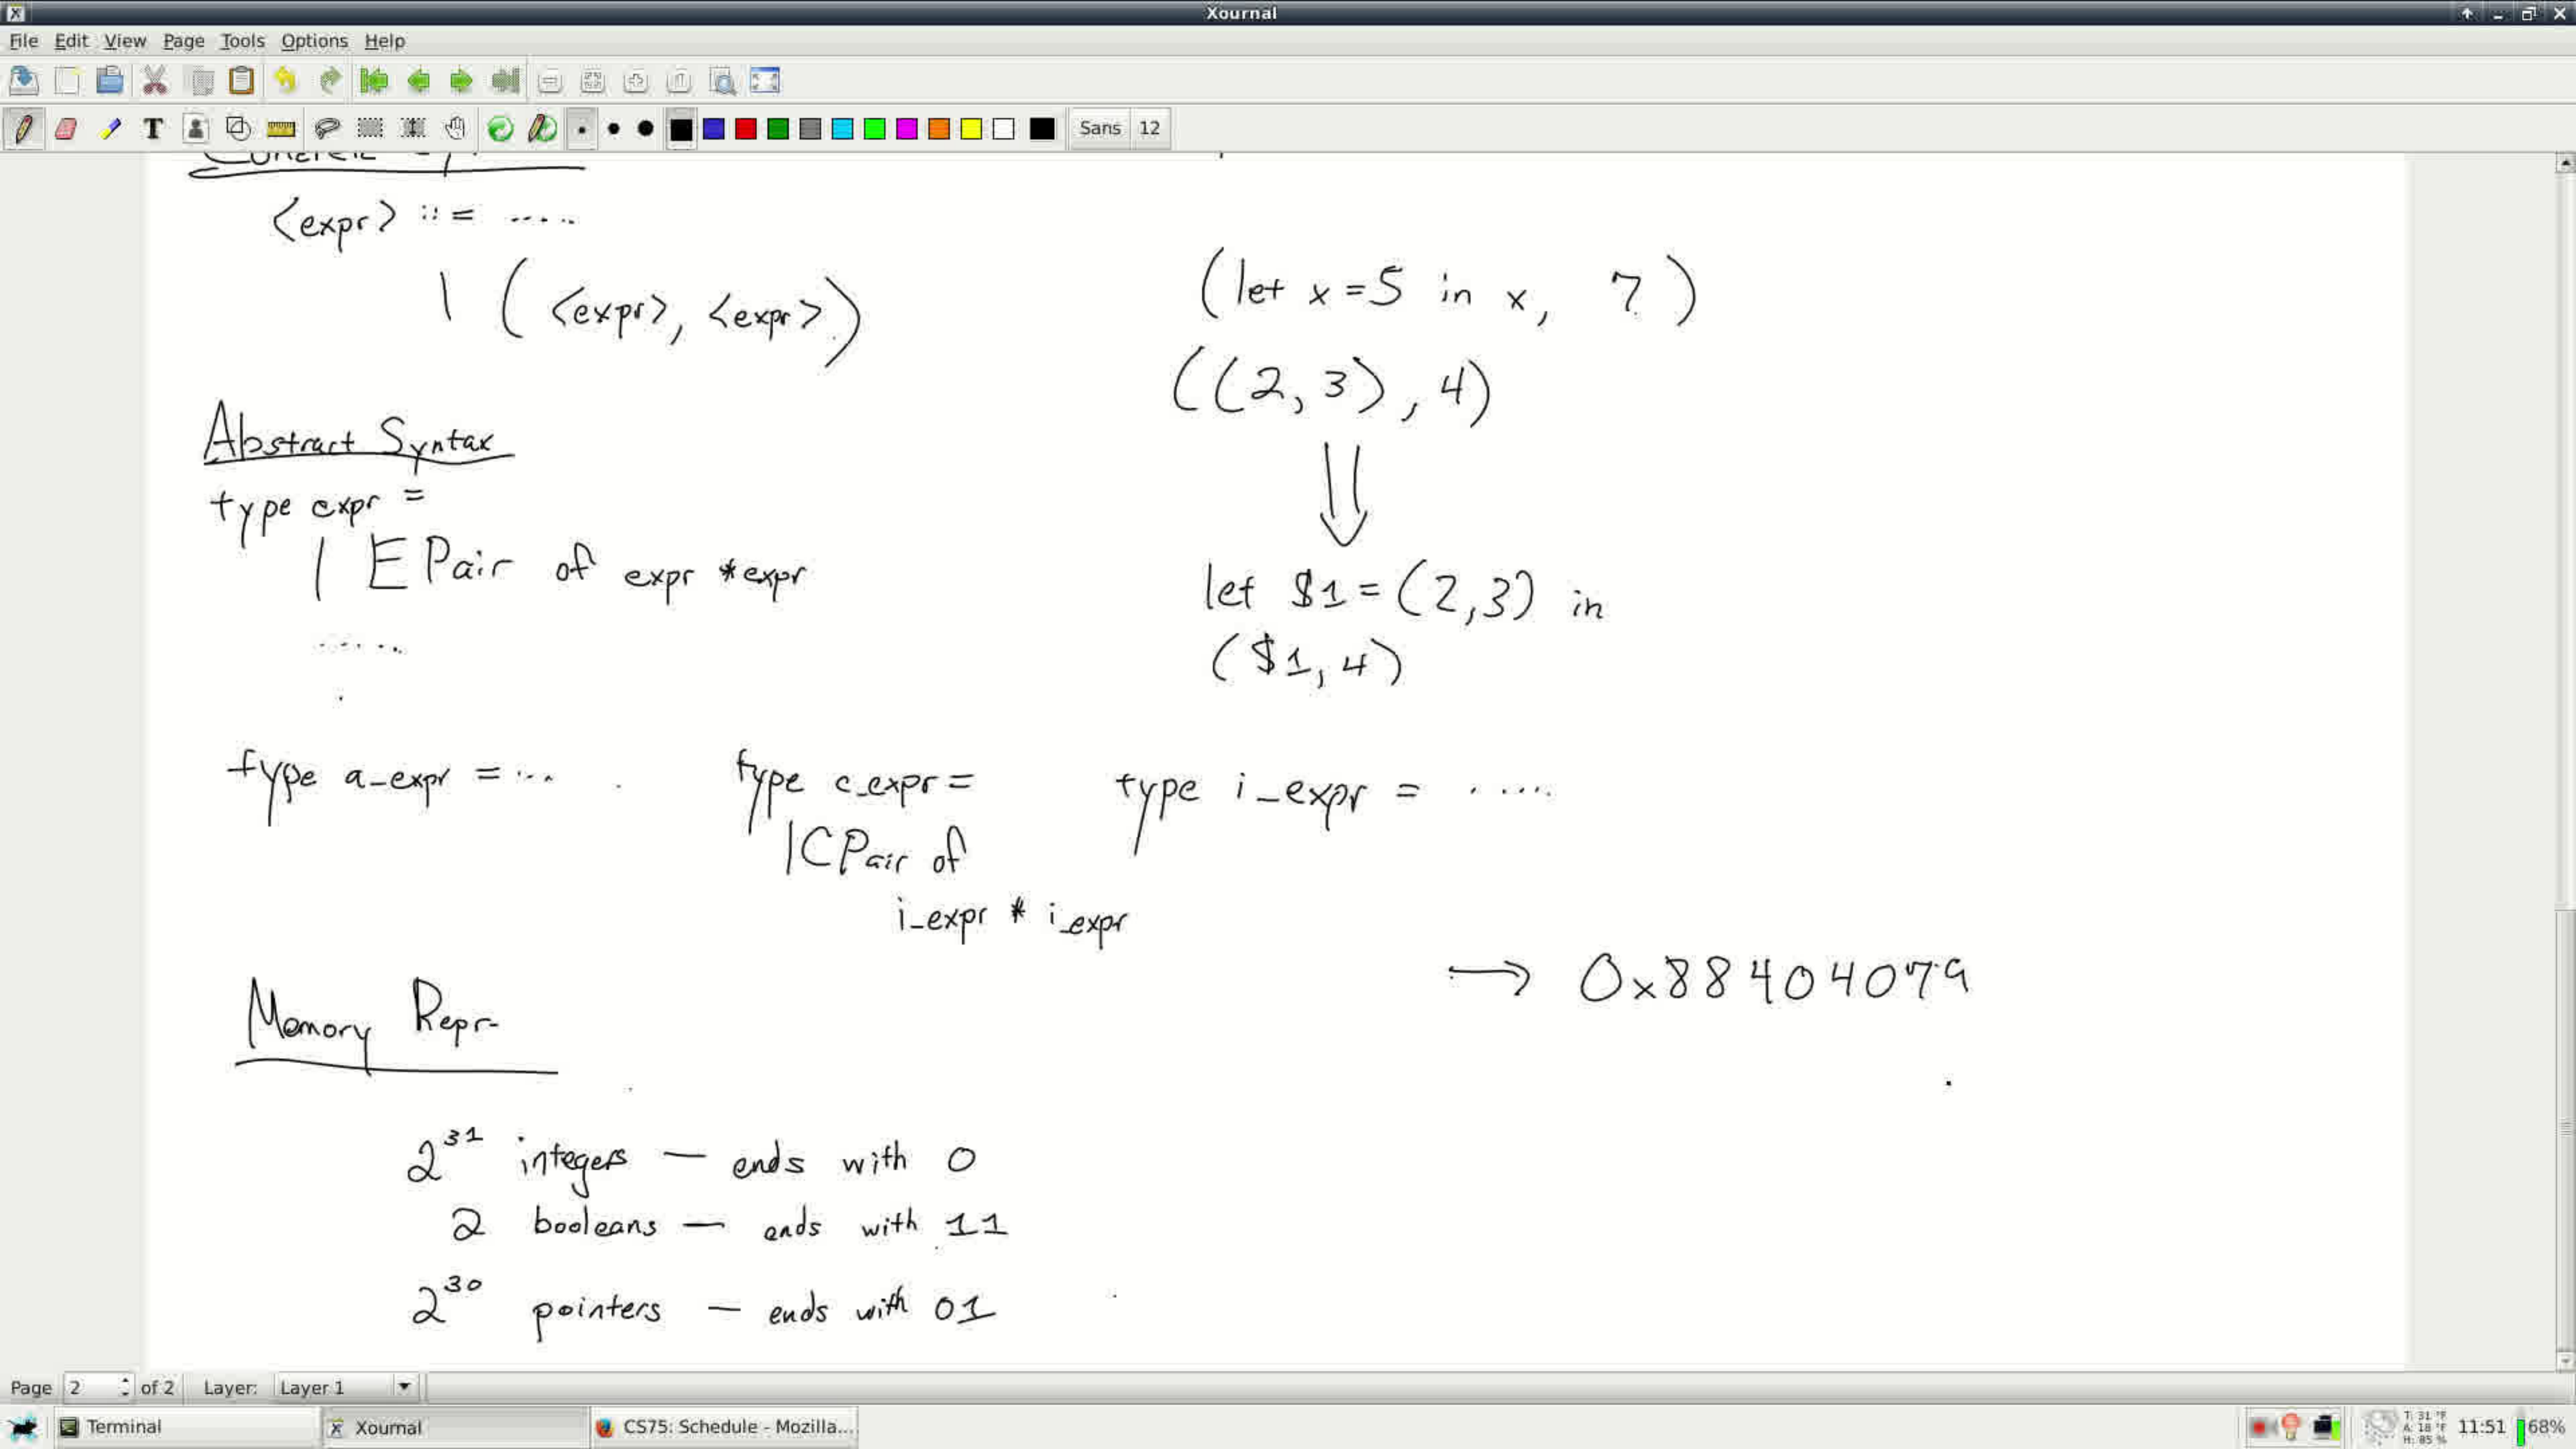 Xournal
File Edit View Page Tools Options Help
Sans 12
<expr> ::= .....
| ( <expr>, <expr> )
(let x = 5 in x, 7)
((2, 3), 4)
Abstract Syntax
type expr =
| EPair of expr * expr
.....
let $1 = (2,3) in
($1, 4)
type a_expr = ...
type c_expr =
| CPair of
i_expr * i_expr
type i_expr = .....
Memory Repr.
→ 0x88404079
2^31 integers — ends with 0
2 booleans — ends with 11
2^30 pointers — ends with 01
Page 2 of 2 Layer: Layer 1
Terminal
Xournal
CS75: Schedule - Mozilla...
T: 31 °F
A: 18 °F
H: 85 %
11:51 68%